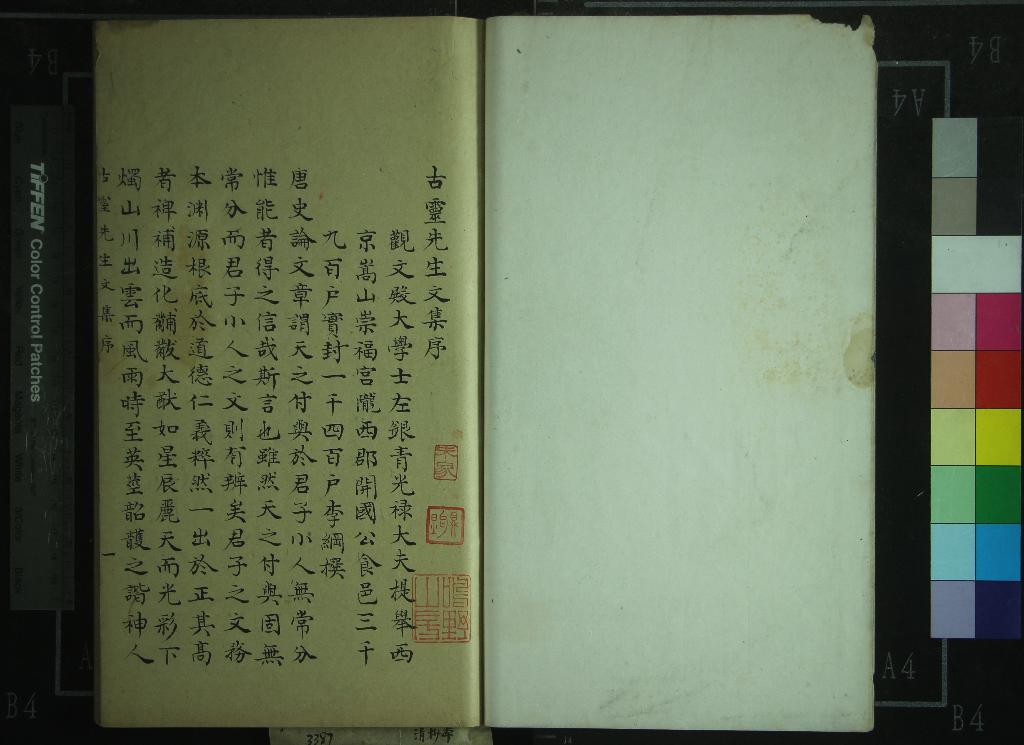 古靈先生文集序
觀文殿大學士左銀青光祿大夫提舉西
京嵩山崇福宮隴西郡開國公食邑三千
九百户實封一千四百户李綱撰
唐史論文章謂天之付與於君子小人無常分
惟能者得之信哉斯言也雖然天之付與固無
常分而君子小人之文則有辨矣君子之文務
本淵源根底於道德仁義粹然一出於正其髙
者裨補造化黼黻大猷如星辰麗天而光彩下
燭山川出雲而風雨時至英莖韶頀之諧神人
古靈先生文集序
一
TIFFEN Color Control Patches
B4
B4
A4
A4
B4
B4
3387
清抄本